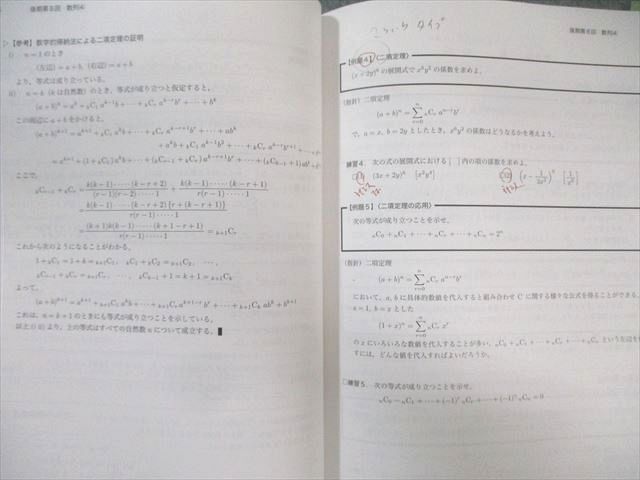 後期第8回・数列④
▷【参考】数学的帰納法による二項定理の証明
i) n=1のとき
(左辺)=a+b, (右辺)=a+b
より,等式は成り立っている。
ii) n=k (kは自然数)のとき,等式が成り立つと仮定すると,
(a+b)^k=a^k+kC1 a^{k-1}b+・・・+kCr a^{k-r}b^r+・・・+b^k
この両辺にa+bをかけると,
(a+b)^{k+1}=a^{k+1}+kC1 a^k b+・・・+kCr a^{k-r+1}b^r+・・・+ab^k
+a^k b+kC1 a^{k-1}b^2+・・・
=a^{k+1}+(1+kC1)a^k b+・・・+(kC_{r-1}+kCr)a^{k-r+1}b^r+・・・+(kC_{k-1}+1)ab^k+
ここで,
kC_{r-1}+kCr=k(k-1)・・・・・(k-r+2)/(r-1)・・・・・1+k(k-1)・・・・・(k-r+1)/r(r-1)・・・・・1
=k(k-1)・・・・・(k-r+2){r+(k-r+1)}/r(r-1)・・・・・1
=(k+1)k(k-1)・・・・・(k+1-r+1)/r(r-1)・・・・・1=k+1Cr
これから次のようになることがわかる。
1+kC1=1+k=k+1C1, kC1+kC2=k+1C2, ・・・,
kC_{r-1}+kCr=k+1Cr, ・・・, kC_{k-1}+1=k+1=k+1Ck
よって,
(a+b)^{k+1}=a^{k+1}+k+1C1 a^k b+・・・+k+1Cr a^{k+1-r}b^r+・・・+k+1Ck ab^k+b^{k+1}
これは,n=k+1のときにも等式が成り立つことを示している。
以上のi)ii)より,上の等式はすべての自然数nについて成立する。
後期第8回・数列④
タイプ
【例題4】〈二項定理〉
の展開式で の係数を求めよ。
(指針) 二項定理
(a+b)^n=Σ_{r=0}^{n} nCr a^{n-r}b^r
で,a=x, b=2yとしたとき, の係数はどうなるかを考えよう。
練習4. 次の式の展開式における[ ]内の項の係数を求めよ。
【例題5】〈二項定理の応用〉
次の等式が成り立つことを示せ。
nC0+nC1+・・・+nCr+・・・+nCn=2^n
(指針) 二項定理
(a+b)^n=Σ_{r=0}^{n} nCr a^{n-r}b^r
において,a,bに具体的数値を代入すると組み合わせCに関する様々な公式を得ることができる。
a=1, b=xとした
(1+x)^n=Σ_{r=0}^{n} nCr x^r
のxにいろいろな数値を代入することが多い。nC0+nC1+・・・+nCr+・・・+nCnという左辺を
すには,どんな値を代入すればよいだろうか。
□練習5. 次の等式が成り立つことを示せ。
nC0-nC1+・・・+(-1)^r nCr+・・・+(-1)^n nCn=0